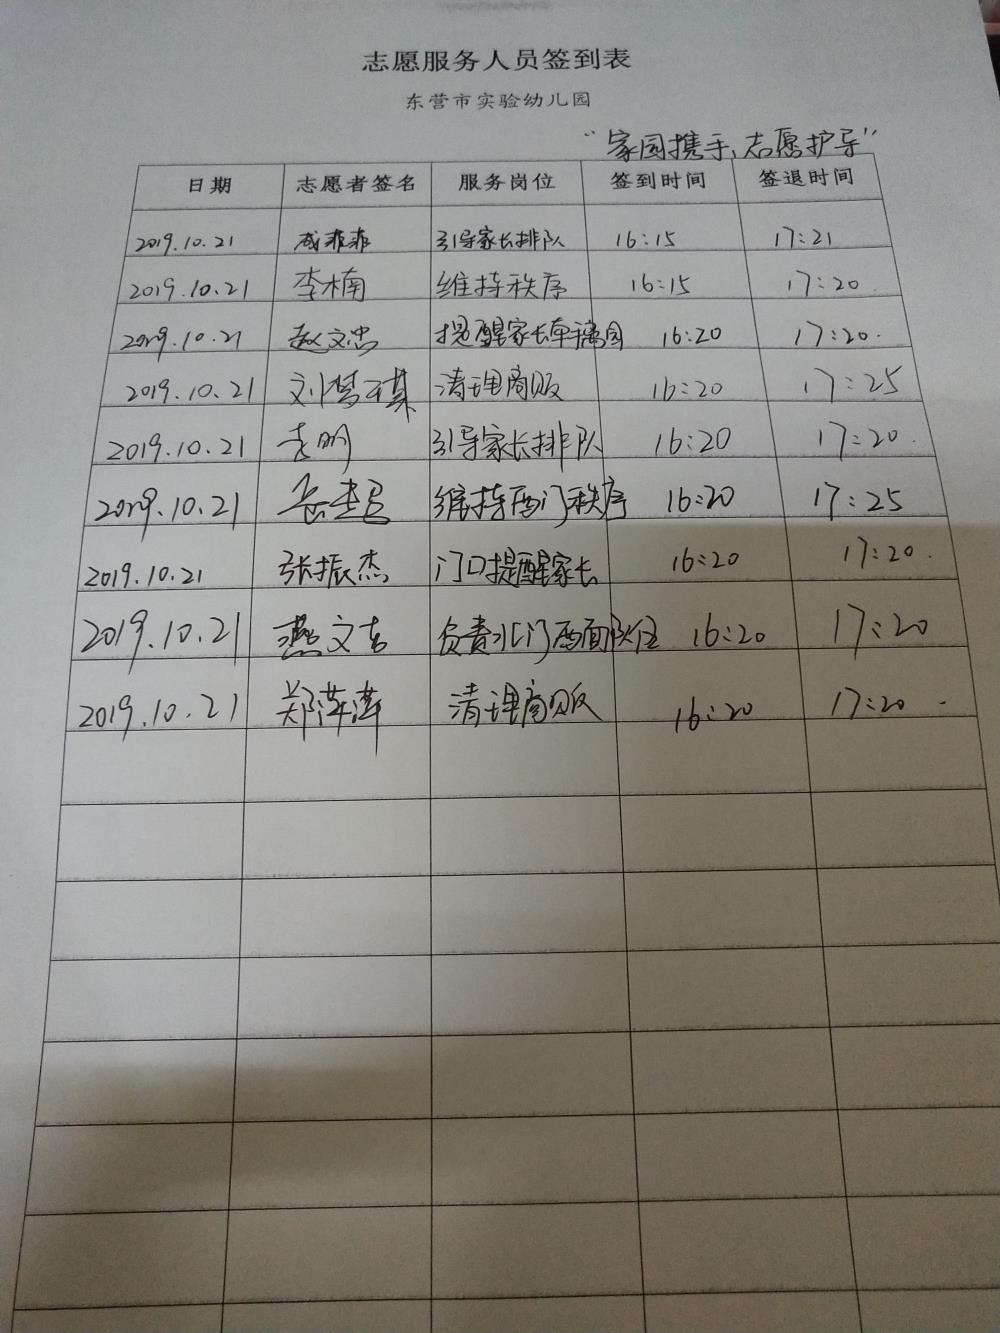 志愿服务人员签到表
东营市实验幼儿园
"家园携手、志愿护导"
日期 志愿者签名 服务岗位 签到时间 签退时间
2019.10.21 成菲菲 引导家长排队 16:15 17:21
2019.10.21 李楠 维持秩序 16:15 17:20
2019.10.21 赵文忠 提醒家长车离园 16:20 17:20
2019.10.21 刘梦琪 清理商贩 16:20 17:25
2019.10.21 李明 引导家长排队 16:20 17:20
2019.10.21 维持西门秩序 16:20 17:25
2019.10.21 张振杰 门口提醒家长 16:20 17:20
2019.10.21 燕文吉 负责北门西面队伍 16:20 17:20
2019.10.21 郑萍萍 清理商贩 16:20 17:20